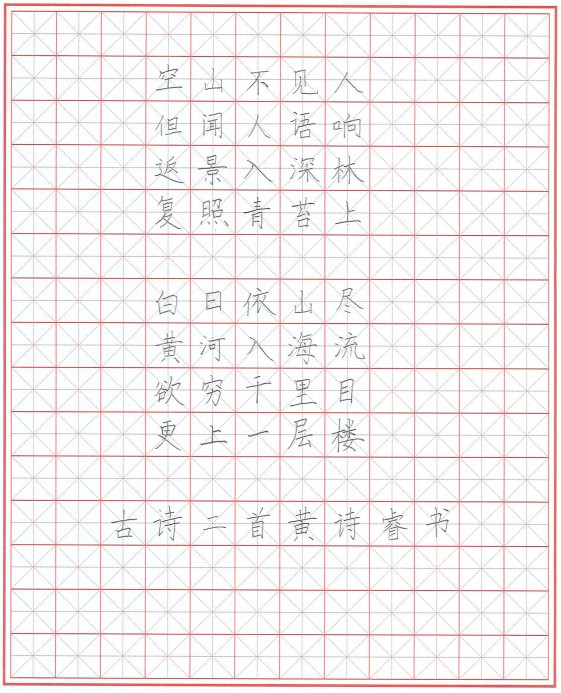 空山不见人
但闻人语响
返景入深林
复照青苔上
白日依山尽
黄河入海流
欲穷千里目
更上一层楼
古诗二首黄诗睿书